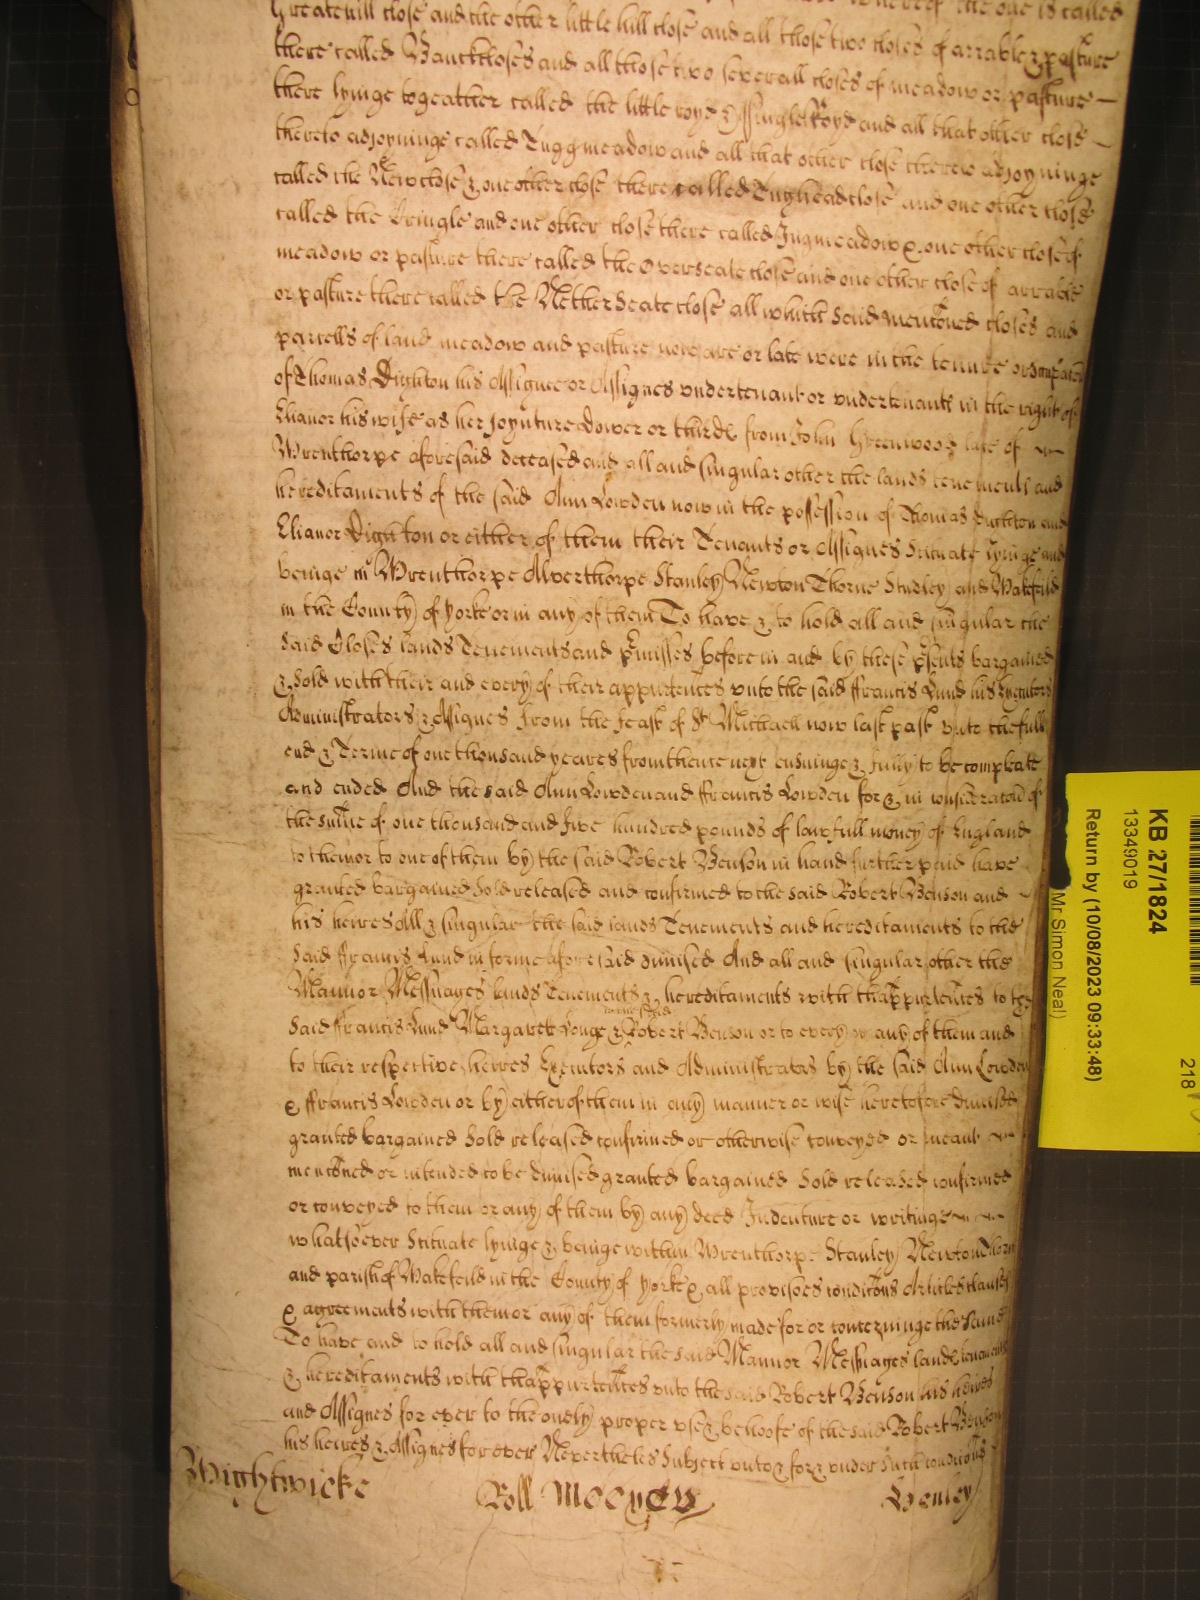 Greatehill close and the other little hill close and all those two closes of arrable & pasture
there called Banckcloses and all those two severall closes of meadow or pasture
there lyinge togeather called the little royd & Single Royd and all that other close
thereto adjoyninge called Ingg meadow and all that other close thereto adjoyninge
called the New close & one other close there called Inghead close and one other close
called the Pringle and one other close there called Ingmeadow & one other close of
meadow or pasture there called the Overseate close and one other close of arrable
or pasture there called the Nether Seate close all which said mentoned closes and
parcells of land meadow and pasture now are or late were in the tenure or
of Thomas Dighton his Assignee or Assignes undertenant or undertenants in the right of
Elianor his wife as her joynture dower or thirds from John Greenwood late of
Wrenthorpe aforesaid deceased and all and singular other the lands tenements and
hereditaments of the said Ann Lowden now in the possession of Thomas Dighton and
Elianor Dighton or either of them their Tenants or Assignes Scituate lyinge and
beinge in Wrenthorpe Alverthorpe Stanley Newton Thorne Studley and Wakefeild
in the County of Yorke or in any of them To have & to hold all and singular the
said Closes lands Tenements and pmisses before in and by these psents bargained
& sold with their and every of their appurtences unto the said ffrancis Lund his Executors
Administrators & Assignes from the feast of St Michaell now last past unto the full
end & Terme of one thousand yeares from thence next ensuinge & fully to be compleate
and ended And the said Ann Lowden and ffrancis Lowden for & in consideratõn of
the summe of one thousand and five hundred pounds of lawfull money of England
to them or to one of them by the said Robert Benson in hand further paid have
granted bargained sold released and confirmed to the said Robert Benson and
his heires All & singular the said lands Tenements and hereditaments to the
said ffrancis Lund in forme aforesaid dimised And all and singular other the
Mannor Messuages lands Tenements & hereditaments with thappurtences to the
said ffrancis Lund Margaret Longe & Robert Benson or to every or any of them and
to their respective heires Executors and Administrators by the said Ann Lowden
& ffrancis Lowden or by either of them in any manner or wise heretofore dimised
granted bargained sold released confirmed or otherwise conveyed or meant
mentoned or intended to be dimised granted bargained sold released confirmed
or conveyed to them or any of them by any deed Indenture or writinge
whatsoever Scituate lyinge & beinge within Wrenthorpe Stanley Newton Thorne
and parish of Wakefeild in the County of Yorke & all provisoes conditons Articles clauses
& agreements with them or any of them formerly made for or concerninge the same
To have and to hold all and singular the said Mannor Messuages lands tenements
& hereditaments with thappurtences unto the said Robert Benson his heires
and Assignes for ever to the onely proper use & behoofe of the said Robert Benson
his heires & Assignes for ever Nevertheles Subject unto & for & under such conditons
Wightwicke Roll Henley
KB 27/1824
13349019
Return by (10/08/2023 09:33:48)
Mr Simon Neal)
218